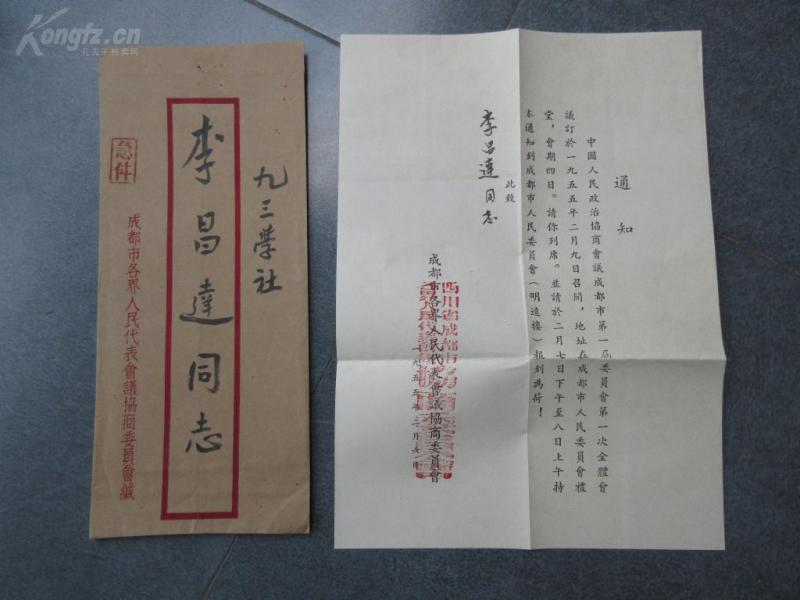 Kongfz.cn
孔夫子拍卖网
九三學社
李昌達同志
急件
成都市各界人民代表會議協商委員會緘
通知
中國人民政治協商會議成都市第一屆委員會第一次全體會
議訂於一九五五年二月九日召開，地址在成都市人民委員會禮
堂，會期四日。請你列席。並請於二月七日下午至八日上午持
本通知到成都市人民委員會（明遠樓）報到為荷！
此致
李昌達同志
成都市各界人民代表會議協商委員會
一九五五年二月